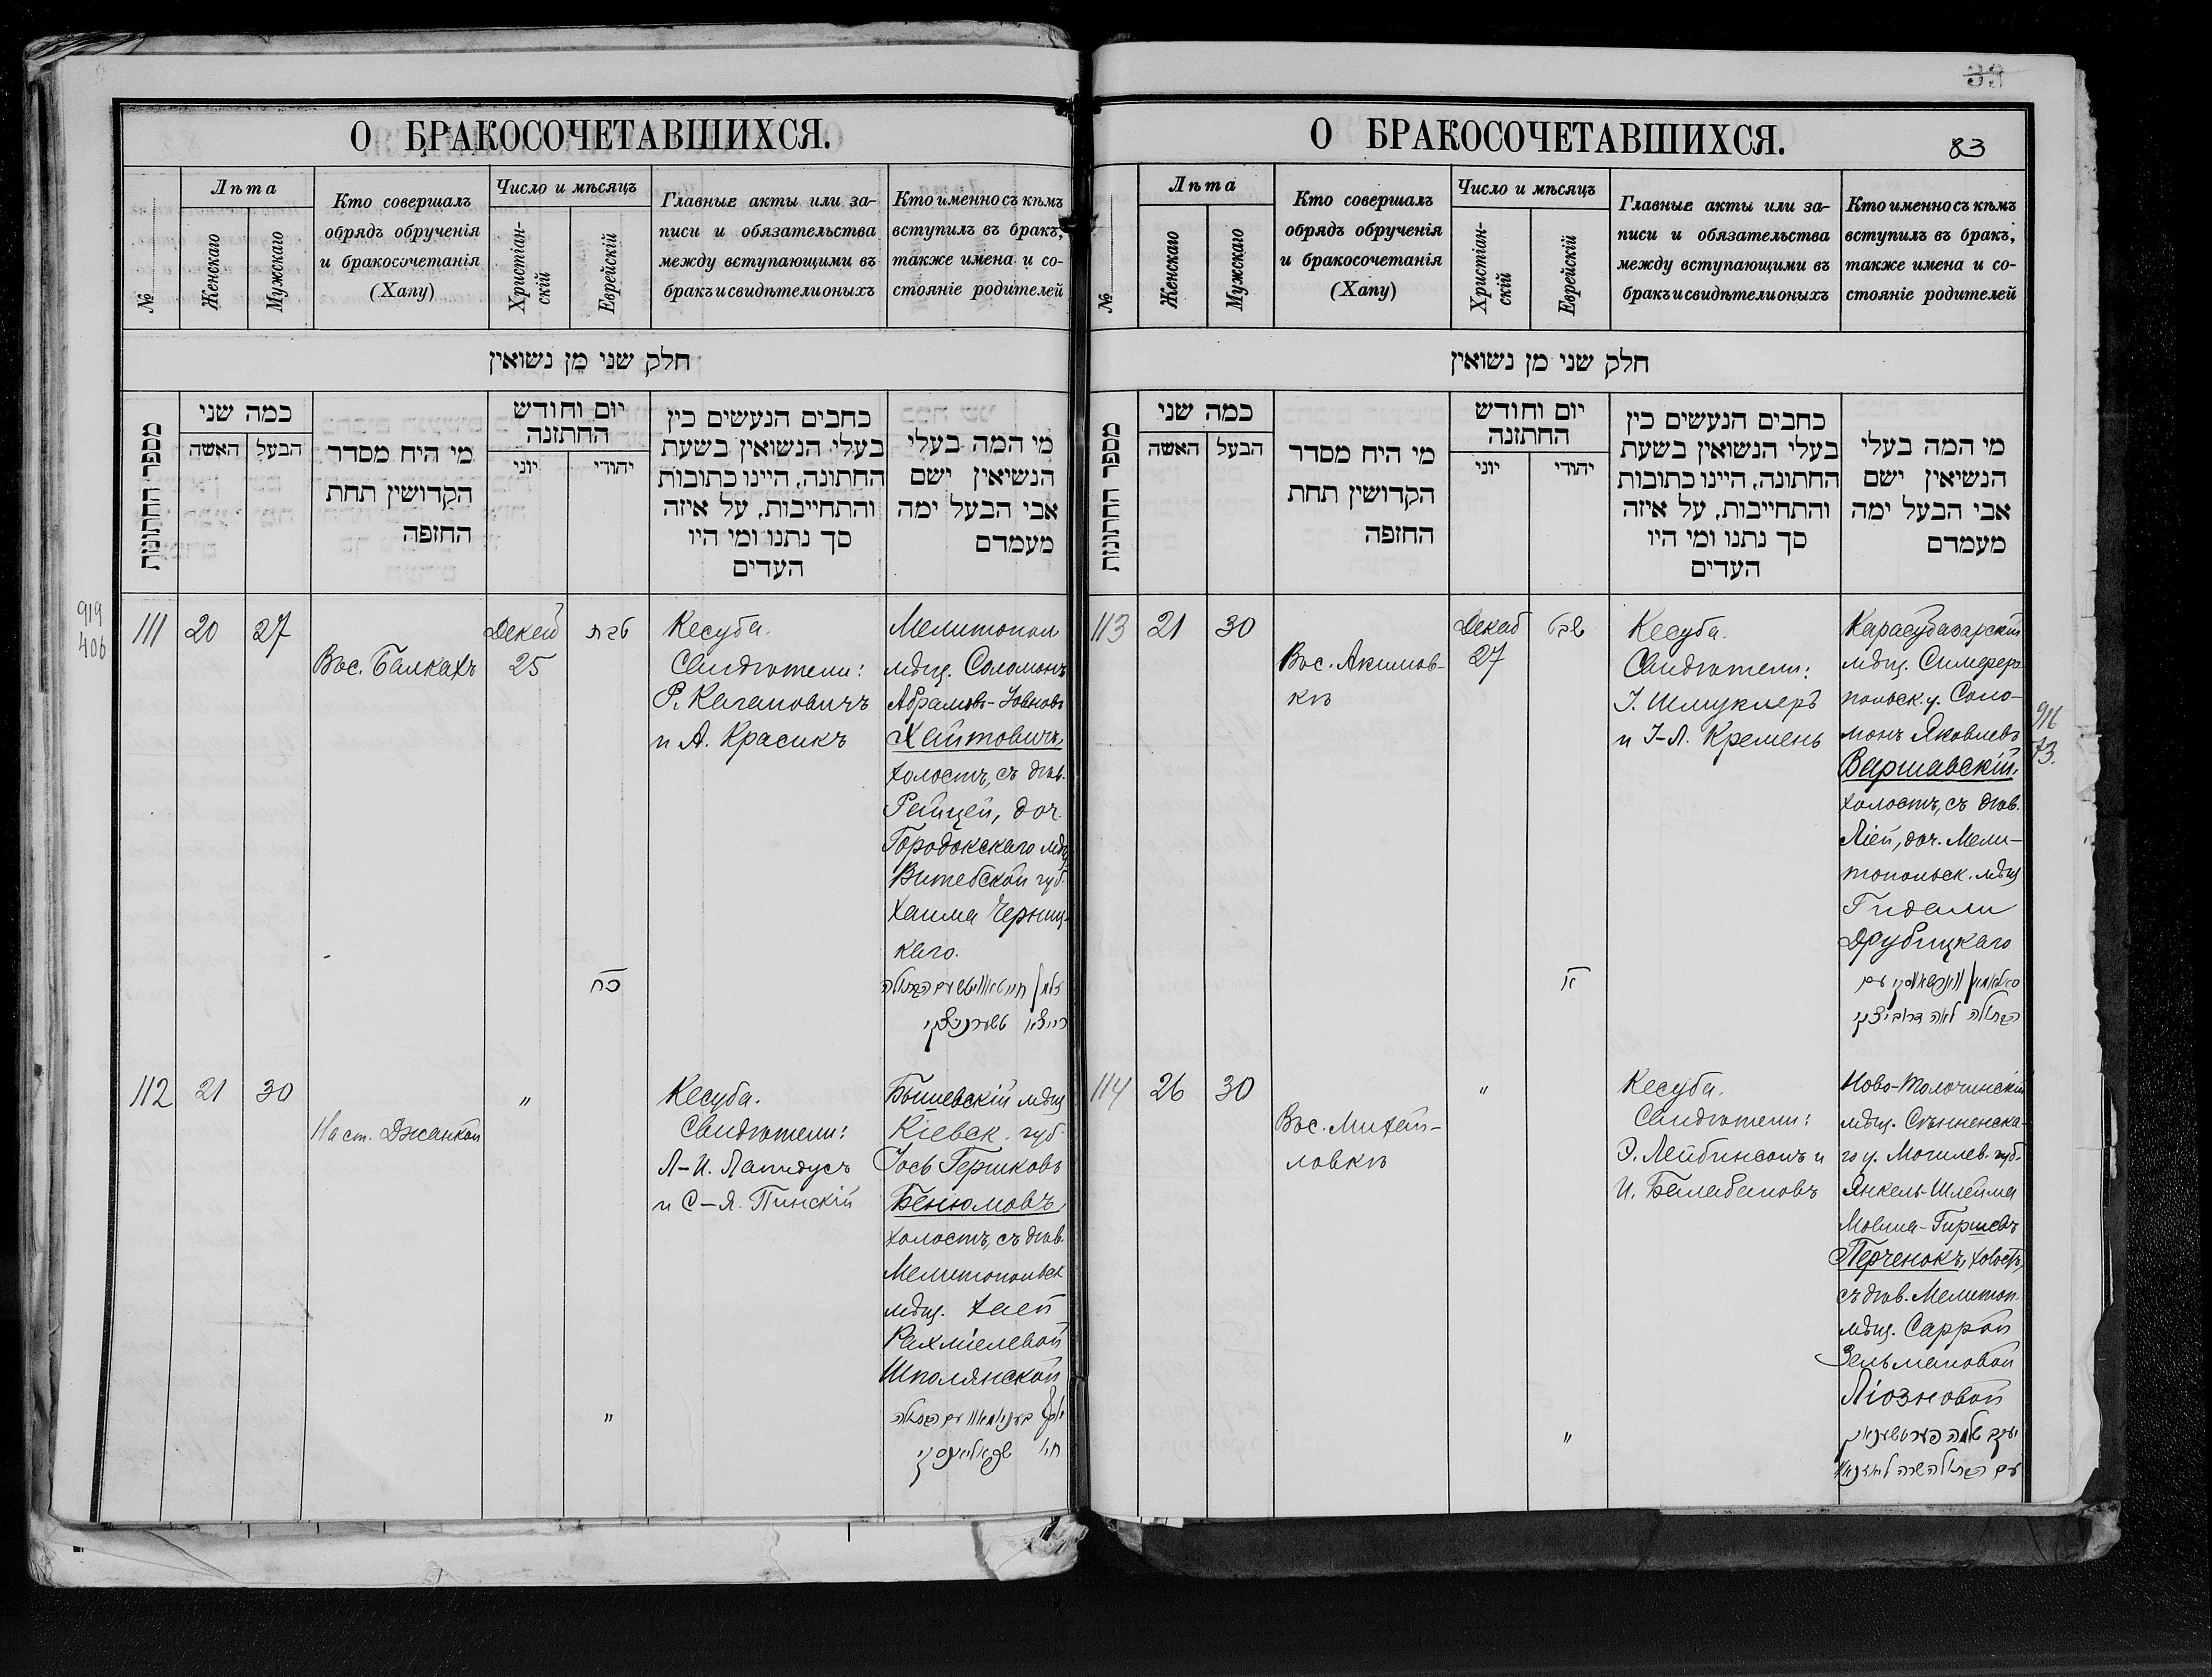 О БРАКОСОЧЕТАВШИХСЯ.
№
Лѣта
Женскаго
Мужскаго
Кто совершалъ
обрядъ обрученія
и бракосочетанія
(Хапу)
Число и мѣсяцъ
Христіан-
скій
Еврейскій
Главные акты или за-
писи и обязательства
между вступающими въ
бракъ и свидѣтели оныхъ
Кто именно съ кѣмъ
вступилъ въ бракъ,
также имена и со-
стояніе родителей
חלק שני מן נשואין
מספר החתונות
כמה שני
האשה
הבעל
מי היה מסדר
הקדושין תחת
החופה
יום וחודש
החתונה
יוני
יהודי
כתבים הנעשים בין
בעלי הנשואין בשעת
החתונה, היינו כתובות
והתחייבות, על איזה
סך נתנו ומי היו
העדים
מי המה בעלי
הנשיאין ישם
אבי הבעל ימה
מעמדם
919
406
111
20
27
Вос. Балкахъ
Декаб
25
טבת
כח
Кесуба.
Свидѣтели:
Р. Кагановичъ
и А. Красикъ
Мелитопол
мѣщ. Соломонъ
Абрамъ-Іовновъ
Хаитовичъ,
холостъ, съ дѣв.
Рейцей, доч.
Городокскаго мѣщ
Витебской губ.
Хаима Черниц-
каго.
112
21
30
На ст. Джанкой
"
"
Кесуба.
Свидѣтели:
Л-И. Лапидусъ
и С-Я. Пинскій
Бышевскій мѣщ
Кіевск. губ.
Іось Гершковъ
Бенюмовъ,
холостъ, съ дѣв.
Мелитопольск
мѣщ. Хаей
Рахміелевой
Шполянской
О БРАКОСОЧЕТАВШИХСЯ.
83
№
Лѣта
Женскаго
Мужскаго
Кто совершалъ
обрядъ обрученія
и бракосочетанія
(Хапу)
Число и мѣсяцъ
Христіан-
скій
Еврейскій
Главные акты или за-
писи и обязательства
между вступающими въ
бракъ и свидѣтели оныхъ
Кто именно съ кѣмъ
вступилъ въ бракъ,
также имена и со-
стояніе родителей
חלק שני מן נשואין
מספר החתונות
כמה שני
האשה
הבעל
מי היה מסדר
הקדושין תחת
החופה
יום וחודש
החתונה
יוני
יהודי
כתבים הנעשים בין
בעלי הנשואין בשעת
החתונה, היינו כתובות
והתחייבות, על איזה
סך נתנו ומי היו
העדים
מי המה בעלי
הנשיאין ישם
אבי הבעל ימה
מעמדם
113
21
30
Вос. Акимов-
кѣ
Декаб
27
שבט
א
Кесуба.
Свидѣтели:
І. Шмуклеръ
и І-Л. Кремень
Карасубазарскій
мѣщ. Симферо
польск. у. Соло-
монъ Яковлевъ
Варшавскій,
холостъ, съ дѣв.
Ліей, доч. Мели-
топольск. мѣщ
Гидали
Друбицкаго
916
73.
114
26
30
Вос. Михай-
ловкѣ
"
"
Кесуба.
Свидѣтели:
Э. Лейбинсонъ и
И. Балабановъ
Ново-Толочинскій
мѣщ. Сѣнненска-
го у. Могилев. губ.
Янкель-Шлейма
Мовша-Гиршевъ
Перченокъ, холостъ,
съ дѣв. Мелитоп.
мѣщ. Саррой
Зельмановой
Ліозновой